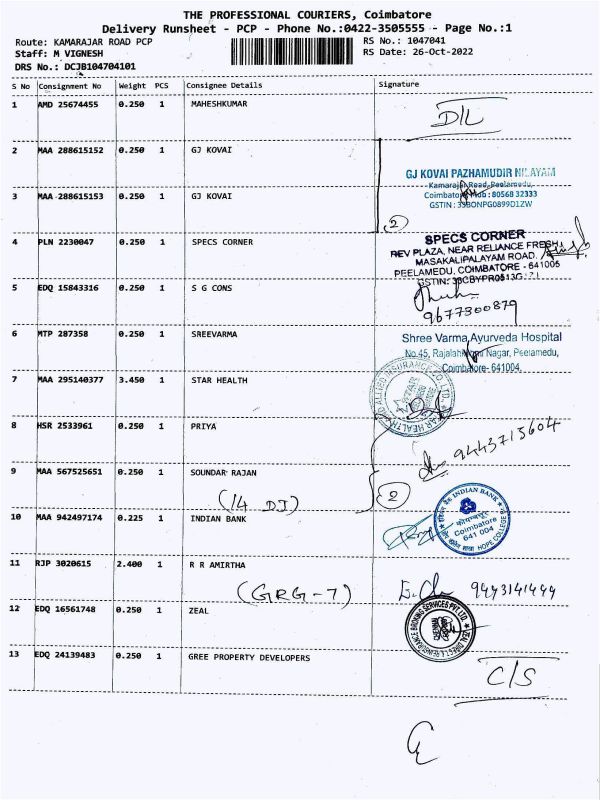 THE PROFESSIONAL COURIERS, Coimbatore
Delivery Runsheet - PCP - Phone No.:0422-3505555 - Page No.:1
Route: KAMARAJAR ROAD PCP
RS No.: 1047041
Staff: M VIGNESH
RS Date: 26-Oct-2022
DRS No.: DCJB104704101
S No Consignment No Weight PCS Consignee Details Signature
1 AMD 25674455 0.250 1 MAHESHKUMAR
D/L
2 MAA 288615152 0.250 1 GJ KOVAI
GJ KOVAI PAZHAMUDIR NILAYAM
Kamarajar Road, Peelamedu,
3 MAA 288615153 0.250 1 GJ KOVAI
Coimbatore Mob : 80568 32333
GSTIN : 33BONPG0899D1ZW
2
4 PLN 2230047 0.250 1 SPECS CORNER
SPECS CORNER
REV PLAZA, NEAR RELIANCE FRESH
MASAKALIPALAYAM ROAD,
PEELAMEDU, COIMBATORE - 641005
5 EDQ 15843316 0.250 1 S G CONS
9677300879
6 MTP 287358 0.250 1 SREEVARMA
Shree Varma Ayurveda Hospital
Nagar, Peelamedu,
Coimbatore- 641004.
7 MAA 295140377 3.450 1 STAR HEALTH
8 HSR 2533961 0.250 1 PRIYA
9443715604
9 MAA 567525651 0.250 1 SOUNDAR RAJAN
2
(14 DJ)
10 MAA 942497174 0.225 1 INDIAN BANK
INDIAN BANK
Coimbatore
641 004
HOPE COLLEGE
11 RJP 3020615 2.400 1 R R AMIRTHA
(GRG-7)
9443141444
12 EDQ 16561748 0.250 1 ZEAL
13 EDQ 24139483 0.250 1 GREE PROPERTY DEVELOPERS
C/S